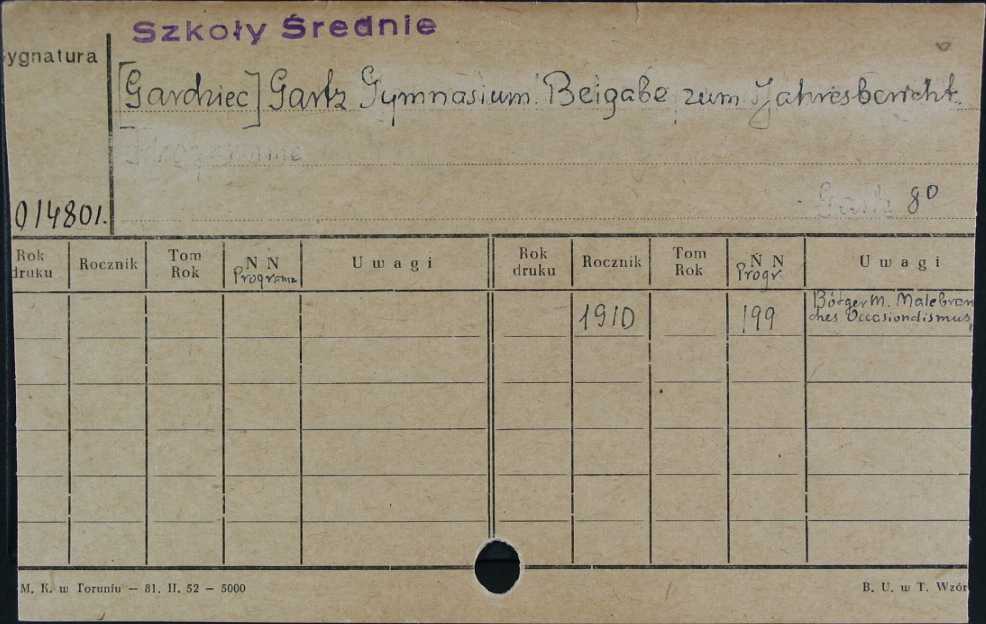 Szkoły Średnie
ygnatura
[Gardziec] Gartz Gymnasium. Beigabe zum Jahresbericht.
Gartz 80
014801.
Rok druku Rocznik Tom Rok N N Programu Uwagi Rok druku Rocznik Tom Rok N N Progr. Uwagi
1910 199 Bötger M. Malebran
ches Occasiondismus,
M. K. w Toruniu — 81. II. 52 — 5000
B. U. w T. Wzór